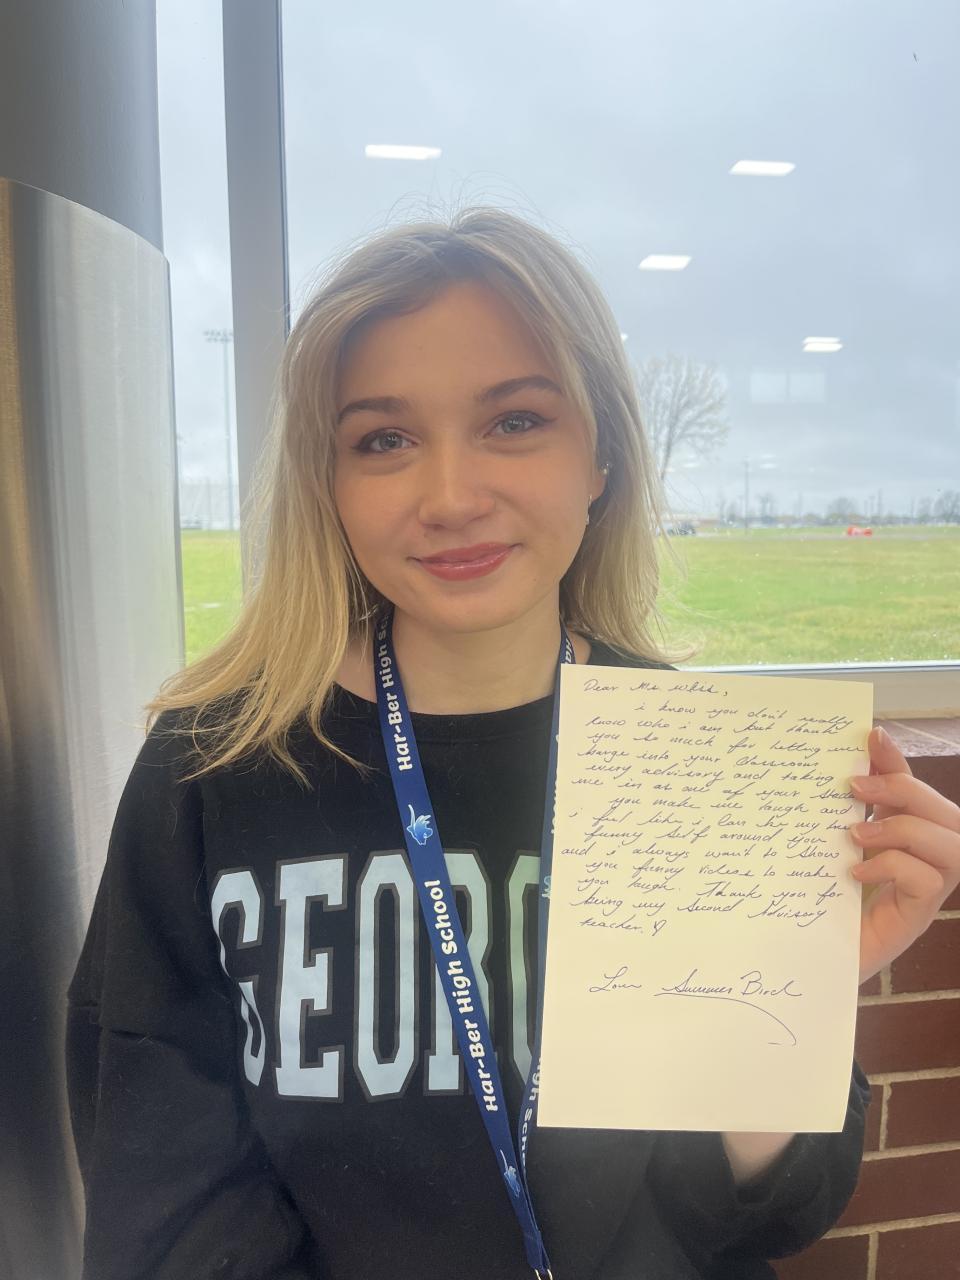 Dear Ms. Weiss,
i know you don't really
know who i am but thank
you so much for letting me
barge into your classroom
every advisory and taking
me in as one of your
you make me laugh and
i feel like i can be my true
funny self around you
and i always want to show
you funny videos to make
you laugh. Thank you for
being my second Advisory
teacher. ♡
Love Summer Bird
GEORG
Har-Ber High Sc
Har-Ber High School
Har-Ber High School